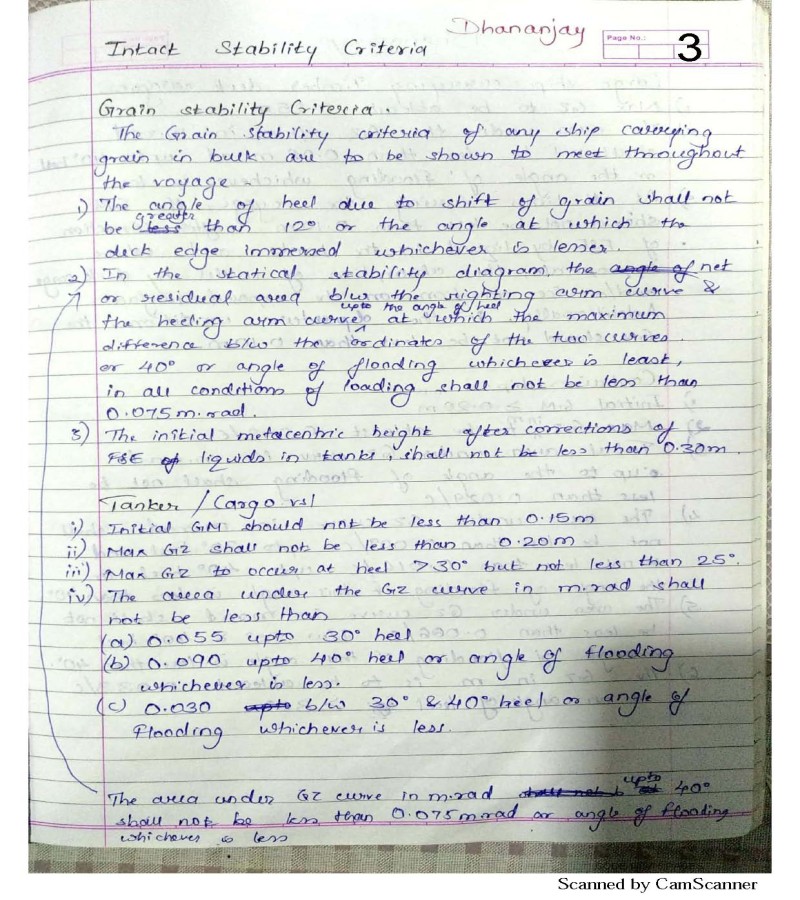 Dhananjay
Page No.:
3
Intact Stability Criteria
Grain stability Criteria.
The Grain stability criteria of any ship carrying
grain in bulk are to be shown to meet throughout
the voyage
1) The angle of heel due to shift of grain shall not
greater
be less than 12° or the angle at which the
deck edge immersed whichever is lesser.
2) In the statical stability diagram the angle of net
or residual area b/w the righting arm curve &
upto the angle of heel
the heeling arm curve at which the maximum
difference b/w the ordinates of the two curves.
or 40° or angle of flooding whichever is least,
in all conditions of loading shall not be less than
0.075 m.rad.
3) The initial metacentric height after corrections of
FSE of liquids in tanks, shall not be less than 0.30m.
Tanker / Cargo vsl
i) Initial GM should not be less than 0.15m
ii) Max GZ shall not be less than 0.20m
iii) Max GZ to occur at heel >30° but not less than 25°.
iv) The area under the GZ curve in m.rad shall
not be less than
(a) 0.055 upto 30° heel
(b) 0.090 upto 40° heel or angle of flooding
whichever is less.
(c) 0.030 upto b/w 30° & 40° heel or angle of
flooding whichever is less.
upto
The area under GZ curve in m.rad shall not b 40°
shall not be less than 0.075 mrad or angle of flooding
whichever is less
Scanned by CamScanner